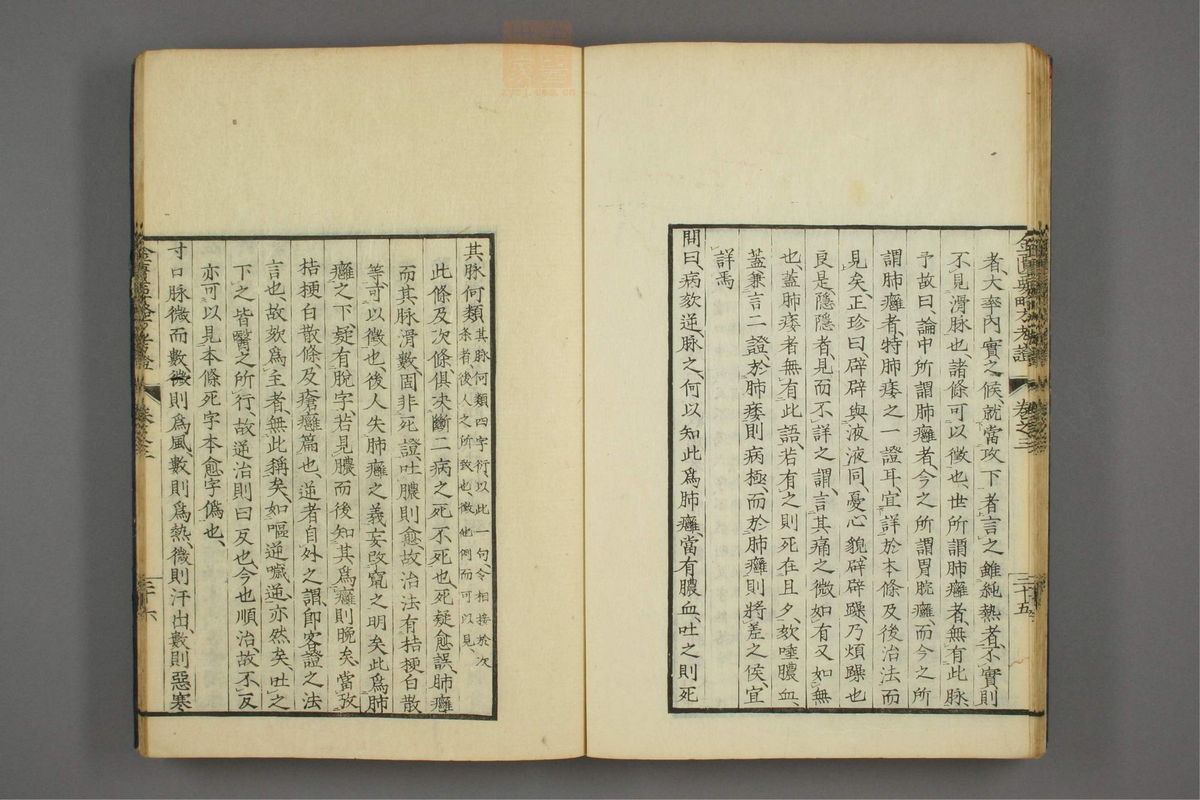 者大率內實之候、就當攻下者言之雖純熱者、不實則
不見滑脉也、諸條可以徵也、世所謂肺癰者、無有此脉、
予故曰、論中所謂肺癰者、今之所謂胃脘癰、而今之所
謂肺癰者、特肺痿之一證耳、宜詳於本條及後治法而
見矣、正珍曰辟辟與液液同、憂心貌、辟辟躁、乃煩躁也
良是隱隱者、見而不詳之謂、言其痛之微如有又如無
也、蓋肺痿者無有此語、若有之則死在旦夕、欬唾膿血、
蓋兼言二證、於肺痿則病極、而於肺癰則將差之候、宜
詳焉
問曰、病欬逆、脉之、何以知此爲肺癰、當有膿血、吐之則死
卷之三
三十五
其脉何類 其脉何類四字衍以此一句、令相接於次
条者、後人之所致也、徵他例而可以見、
此條及次條、俱决斷二病之死不死也、死疑愈誤、肺癰
而其脉滑數、固非死證、吐膿則愈、故治法有桔梗白散
等、可以徵也、後人失肺癰之義、妄改竄之明矣、此爲肺
癰之下、疑有脫字、若見膿而後知其爲癰則晚矣、當攷
桔梗白散條及瘡癰篇也、逆者自外之謂、卽客證之法
言也、故欬爲主者、無此稱矣、如嘔逆噦逆、亦然矣、吐之
下之皆醫之所行、故逆治則曰反也、今也順治、故不反
亦可以見本條死字本愈字僞也、
寸口脉微而數、微則爲風、數則爲熱、微則汗出、數則惡寒
三十六